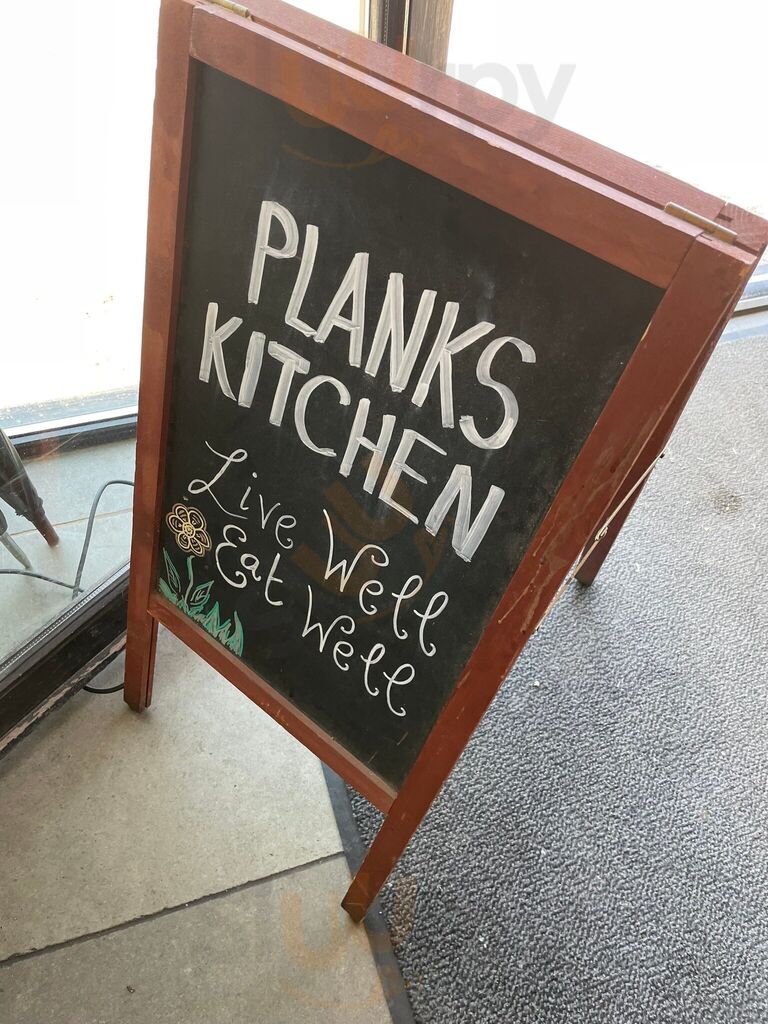 PLANKS
KITCHEN
Live Well
Eat Well